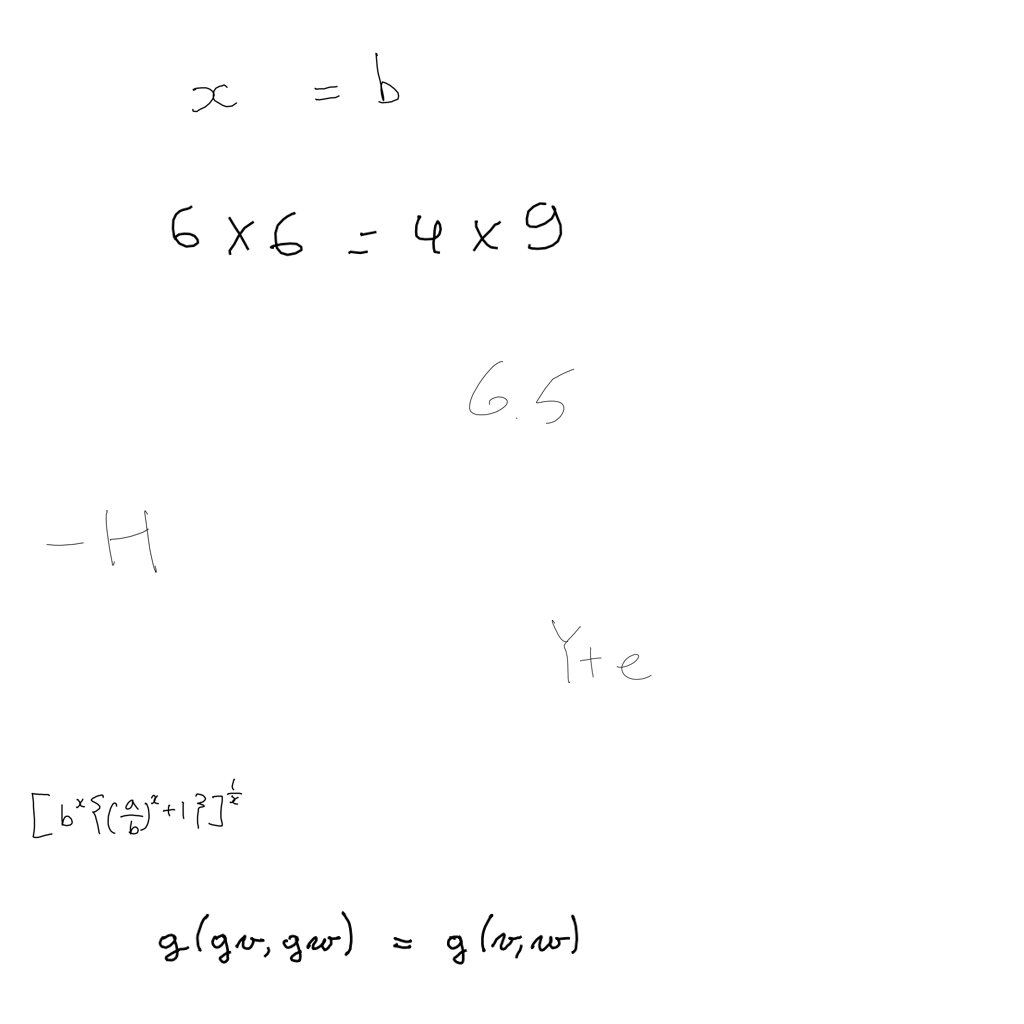 x = b
6 × 6 = 4 × 9
6.5
-H
Y+e
[b^x{(a/b)^x+1}]^{1/x}
g(gv, gw) = g(v, w)